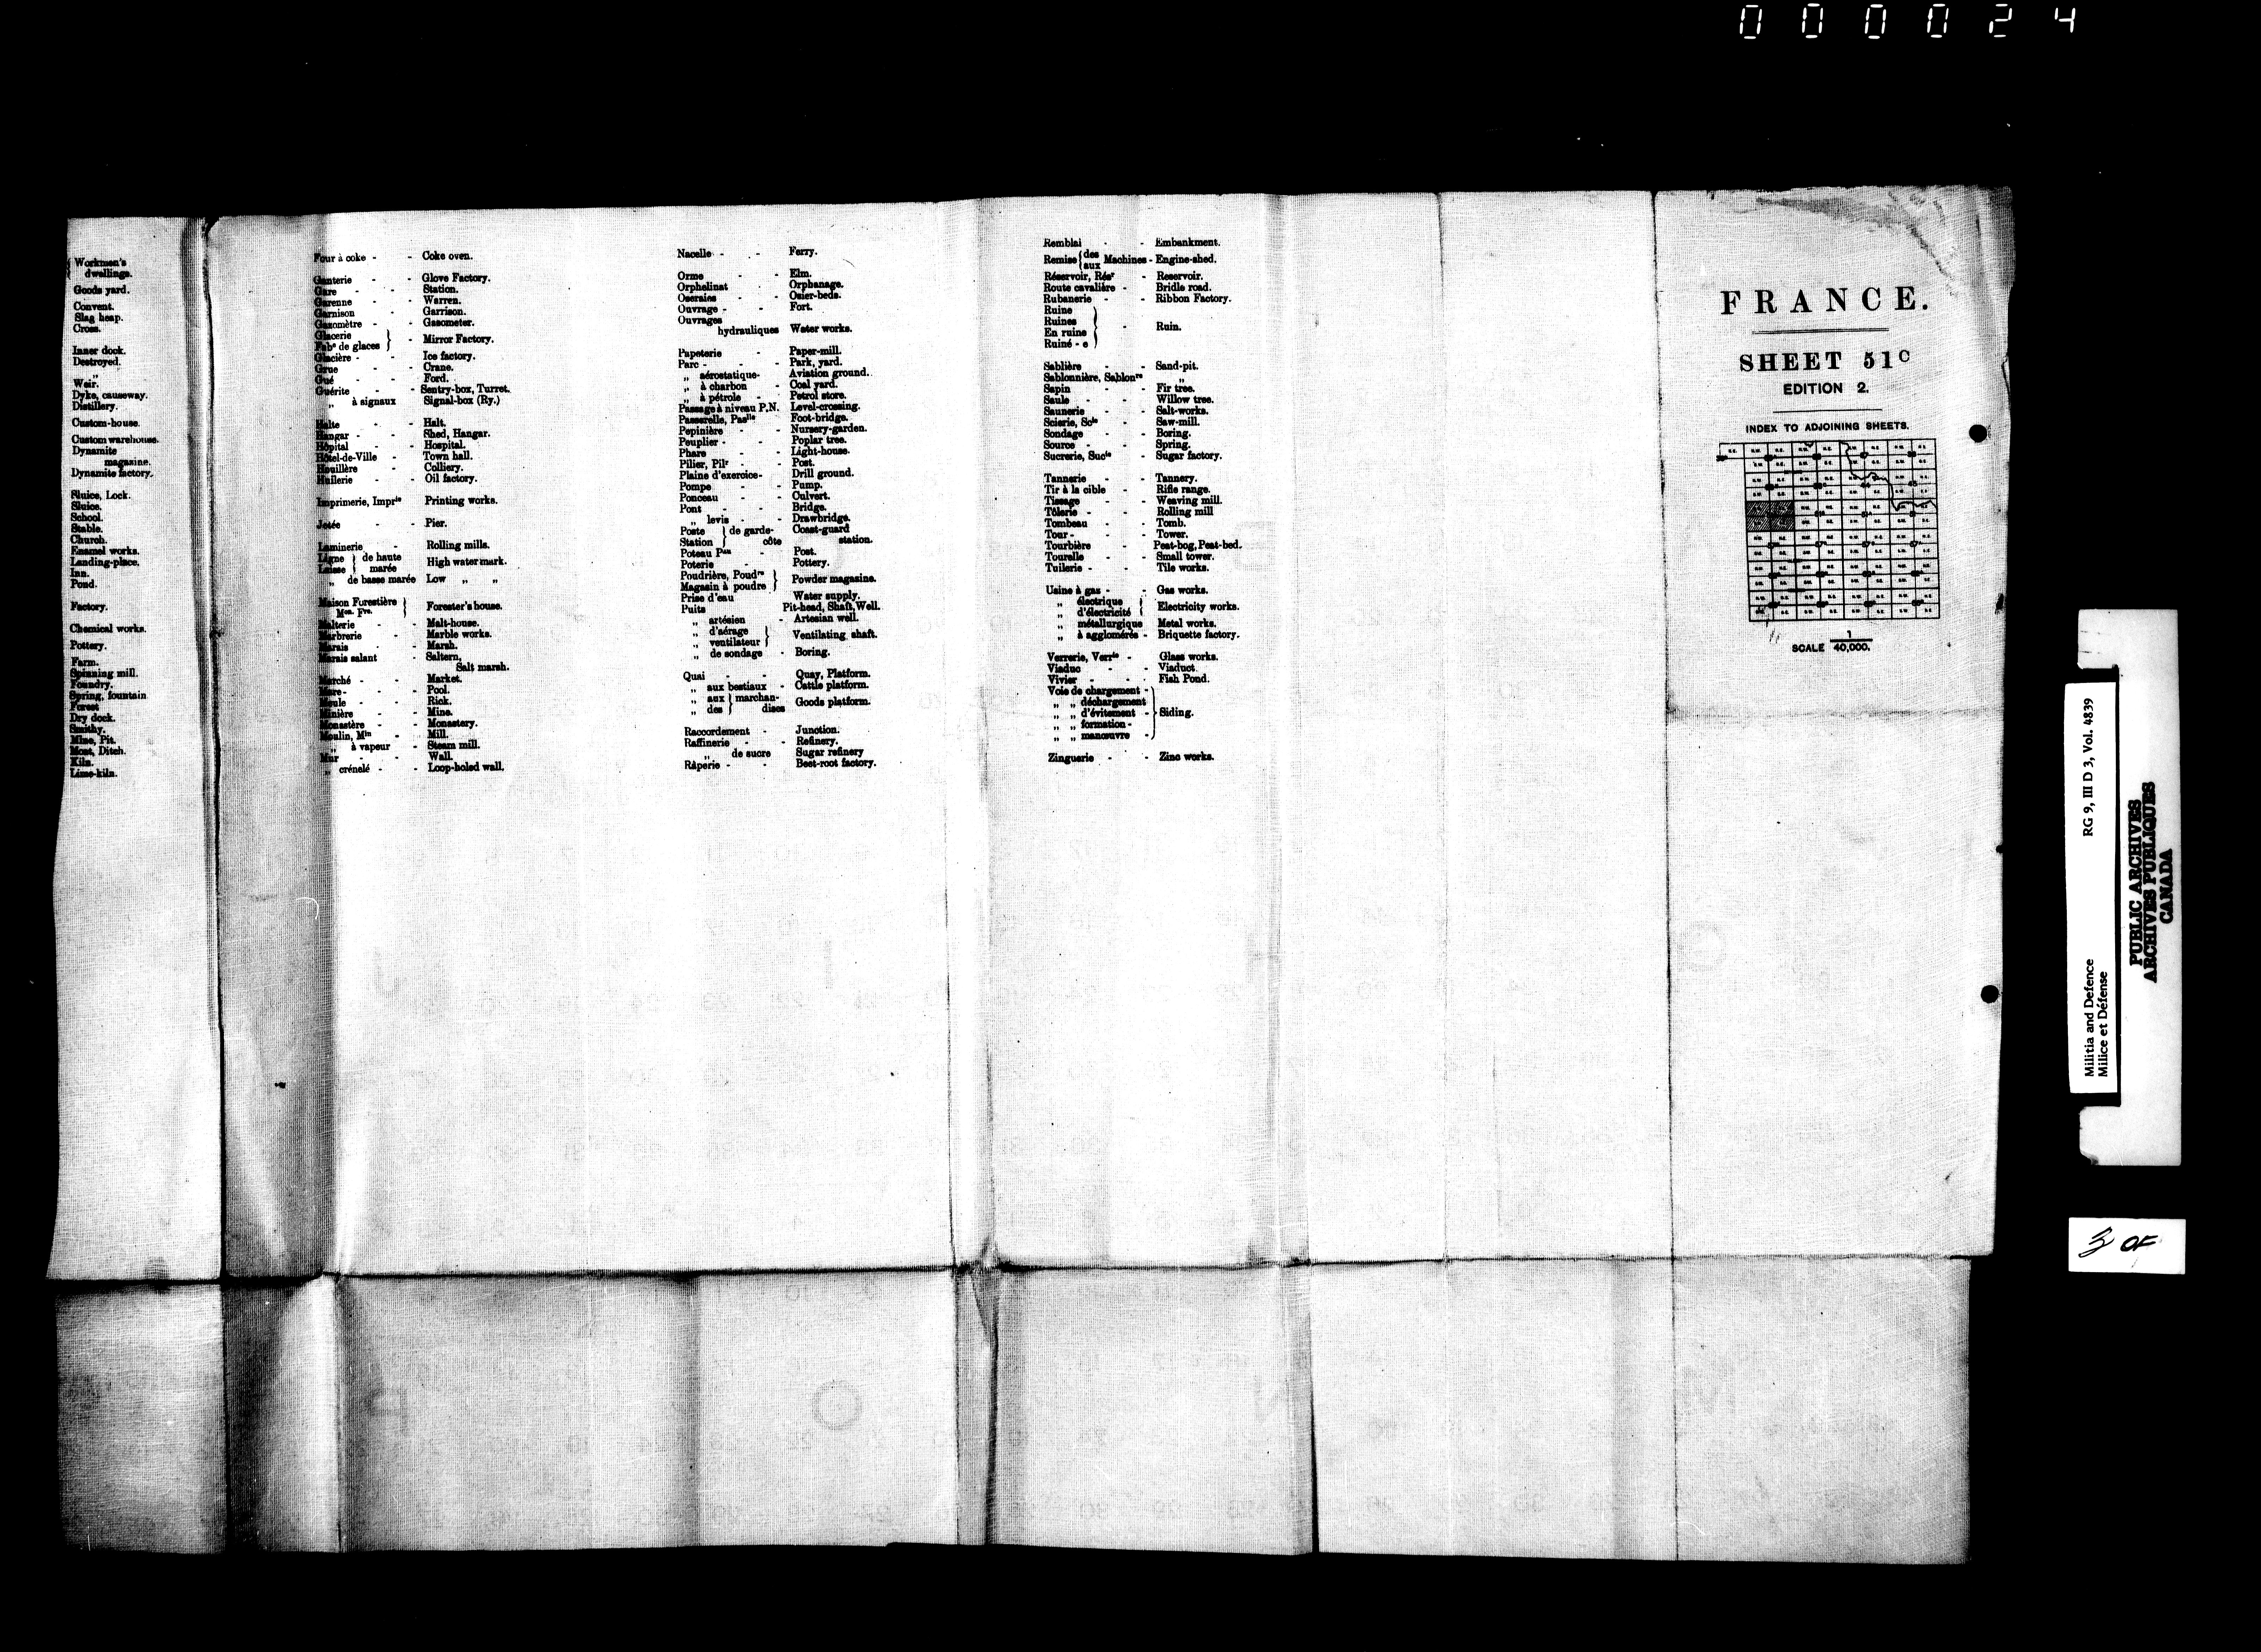 000024
Workmen's
dwellings.
Goods yard.
Convent.
Slag heap.
Cross.
Inner dock.
Destroyed.
„
Weir.
Dyke, causeway.
Distillery.
Custom-house.
Custom warehouse.
Dynamite
magazine.
Dynamite factory.
Sluice, Lock.
Sluice.
School.
Stable.
Church.
Enamel works.
Landing-place.
Inn.
Pond.
Factory.
Chemical works.
Pottery.
Farm.
Spinning mill.
Foundry.
Spring, fountain
Forest
Dry dock.
Smithy.
Mine, Pit.
Moat, Ditch.
Kiln.
Lime-kiln.
Four à coke - - Coke oven.
Ganterie - - Glove Factory.
Gare - - Station.
Garenne - - Warren.
Garnison - Garrison.
Gazomètre - - Gasometer.
Glacerie
Fabᵉ de glaces } - Mirror Factory.
Glacière - - Ice factory.
Grue - - Crane.
Gué - - Ford.
Guérite - - Sentry-box, Turret.
„ à signaux Signal-box (Ry.)
Halte - - Halt.
Hangar - - Shed, Hangar.
Hôpital - Hospital.
Hôtel-de-Ville - Town hall.
Houillère - Colliery.
Huilerie - - Oil factory.
Imprimerie, Imprⁱᵉ Printing works.
Jetée - - Pier.
Laminerie - Rolling mills.
Ligne } de haute
Laisse } marée High water mark.
„ de basse marée Low „ „
Maison Forestière
Mᵒⁿ. Fʳᵉ. } Forester's house.
Malterie - - Malt-house.
Marbrerie - Marble works.
Marais - - Marsh.
Marais salant - Saltern,
Salt marsh.
Marché - - Market.
Mare - - - Pool.
Meule - - Rick.
Minière - - Mine.
Monastère - - Monastery.
Moulin, Mⁱⁿ - Mill.
„ à vapeur - Steam mill.
Mur - - Wall.
„ crénelé - - Loop-holed wall.
Nacelle - - Ferry.
Orme - - Elm.
Orphelinat - Orphanage.
Oseraies - - Osier-beds.
Ouvrage - - Fort.
Ouvrages
hydrauliques Water works.
Papeterie - Paper-mill.
Parc - - - Park, yard.
„ aérostatique - Aviation ground.
„ à charbon - Coal yard.
„ à pétrole - - Petrol store.
Passage à niveau P.N. Level-crossing.
Passerelle, Pasˡˡᵉ Foot-bridge.
Pepinière - - Nursery-garden.
Peuplier - - Poplar tree.
Phare - - Light-house.
Pilier, Pilʳ - - Post.
Plaine d'exercice - Drill ground.
Pompe - - Pump.
Ponceau - - Culvert.
Pont - - Bridge.
„ levis - - Drawbridge.
Poste } de garde- Coast-guard
Station } côte station.
Poteau Pᵃᵘ - Post.
Poterie - - Pottery.
Poudrière, Poudʳᵉ
Magasin à poudre } Powder magazine.
Prise d'eau Water supply.
Puits Pit-head, Shaft, Well.
„ artésien - Artesian well.
„ d'aérage
„ ventilateur } Ventilating shaft.
„ de sondage - Boring.
Quai - - Quay, Platform.
„ aux bestiaux - Cattle platform.
„ aux } marchan-
„ des } dises Goods platform.
Raccordement - Junction.
Raffinerie - - Refinery.
„ de sucre Sugar refinery
Râperie - - Beet-root factory.
Remblai - - Embankment.
Remise { des
aux Machines - Engine-shed.
Réservoir, Résʳ - Reservoir.
Route cavalière - Bridle road.
Rubanerie - - Ribbon Factory.
Ruine
Ruines
En ruine
Ruiné - e } - Ruin.
Sablière - - Sand-pit.
Sablonnière, Sablonʳᵉ „
Sapin - - Fir tree.
Saule - - Willow tree.
Saunerie - - Salt-works.
Scierie, Scⁱᵉ - Saw-mill.
Sondage - - Boring.
Source - - Spring.
Sucrerie, Sucⁱᵉ - Sugar factory.
Tannerie - - Tannery.
Tir à la cible - Rifle range.
Tissage - - Weaving mill.
Tôlerie - - Rolling mill
Tombeau - - Tomb.
Tour - - - Tower.
Tourbière - Peat-bog, Peat-bed.
Tourelle - - Small tower.
Tuilerie - - Tile works.
Usine à gas - - Gas works.
„ électrique
„ d'électricité } Electricity works.
„ métallurgique Metal works.
„ à agglomérés - Briquette factory.
Verrerie, Verrⁱᵉ - Glass works.
Viaduc - - Viaduct.
Vivier - - - Fish Pond.
Voie de chargement -
„ „ déchargement
„ „ d'évitement - } Siding.
„ „ formation -
„ „ manœuvre -
Zinguerie - - Zinc works.
FRANCE.
SHEET 51ᶜ
EDITION 2.
INDEX TO ADJOINING SHEETS.
SCALE 1/40,000.
RG 9, III D 3, Vol. 4839
Militia and Defence
Milice et Défense
PUBLIC ARCHIVES
ARCHIVES PUBLIQUES
CANADA
3 OF